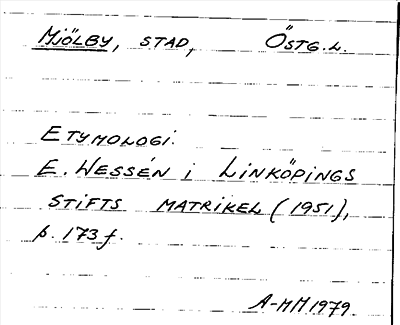 Mjölby, stad, Östg.l.
Etymologi.
E. Wessén i Linköpings
stifts matrikel (1951),
p. 173 f.
A-MM 1979